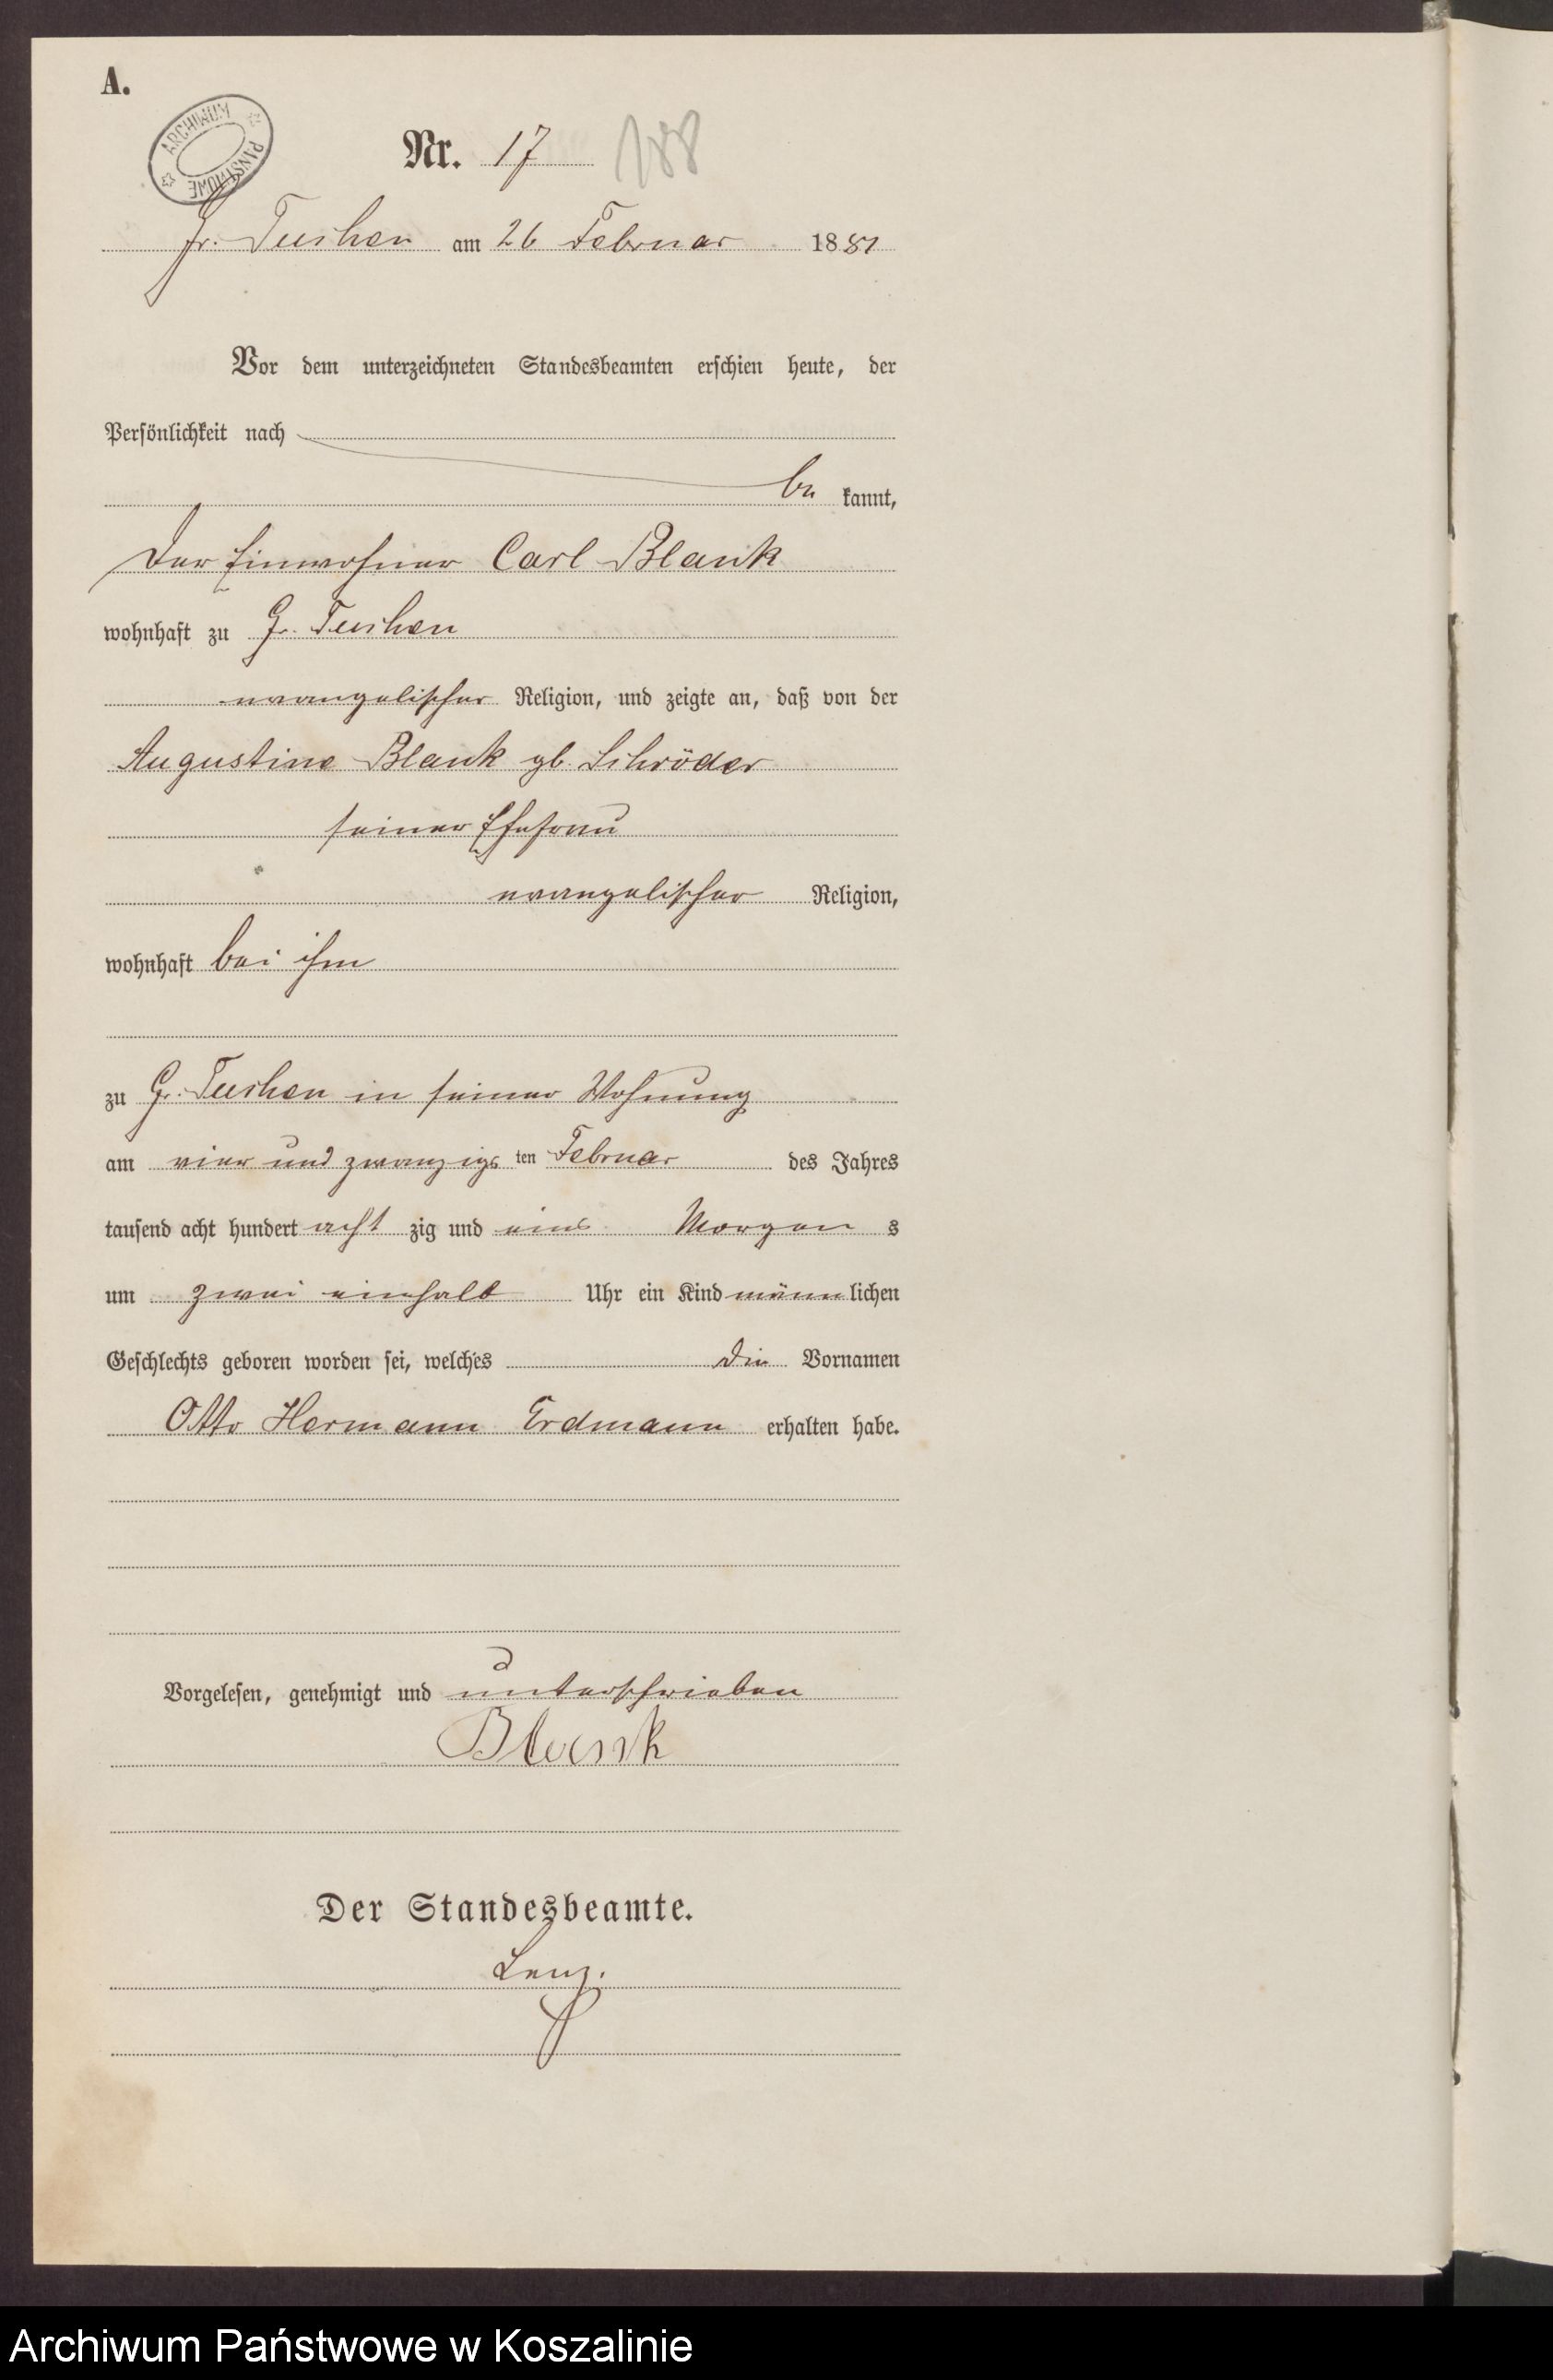 A.
ARCHIWUM PAŃSTWOWE
Nr. 17 188
Gr. Tuchen am 26 Februar 1881
Vor dem unterzeichneten Standesbeamten erschien heute, der
Persönlichkeit nach
be kannt,
der Einwohner Carl Blank
wohnhaft zu Gr. Tuchen
evangelischer Religion, und zeigte an, daß von der
Augustine Blank gb. Schröder
seiner Ehefrau
evangelischer Religion,
wohnhaft bei ihm
zu Gr. Tuchen in seiner Wohnung
am vier und zwanzigs ten Februar des Jahres
tausend acht hundert acht zig und eins Morgen s
um zwei einhalb Uhr ein Kind männ lichen
Geschlechts geboren worden sei, welches die Vornamen
Otto Hermann Erdmann erhalten habe.
Vorgelesen, genehmigt und unterschrieben
Blank
Der Standesbeamte.
Lenz.
Archiwum Państwowe w Koszalinie